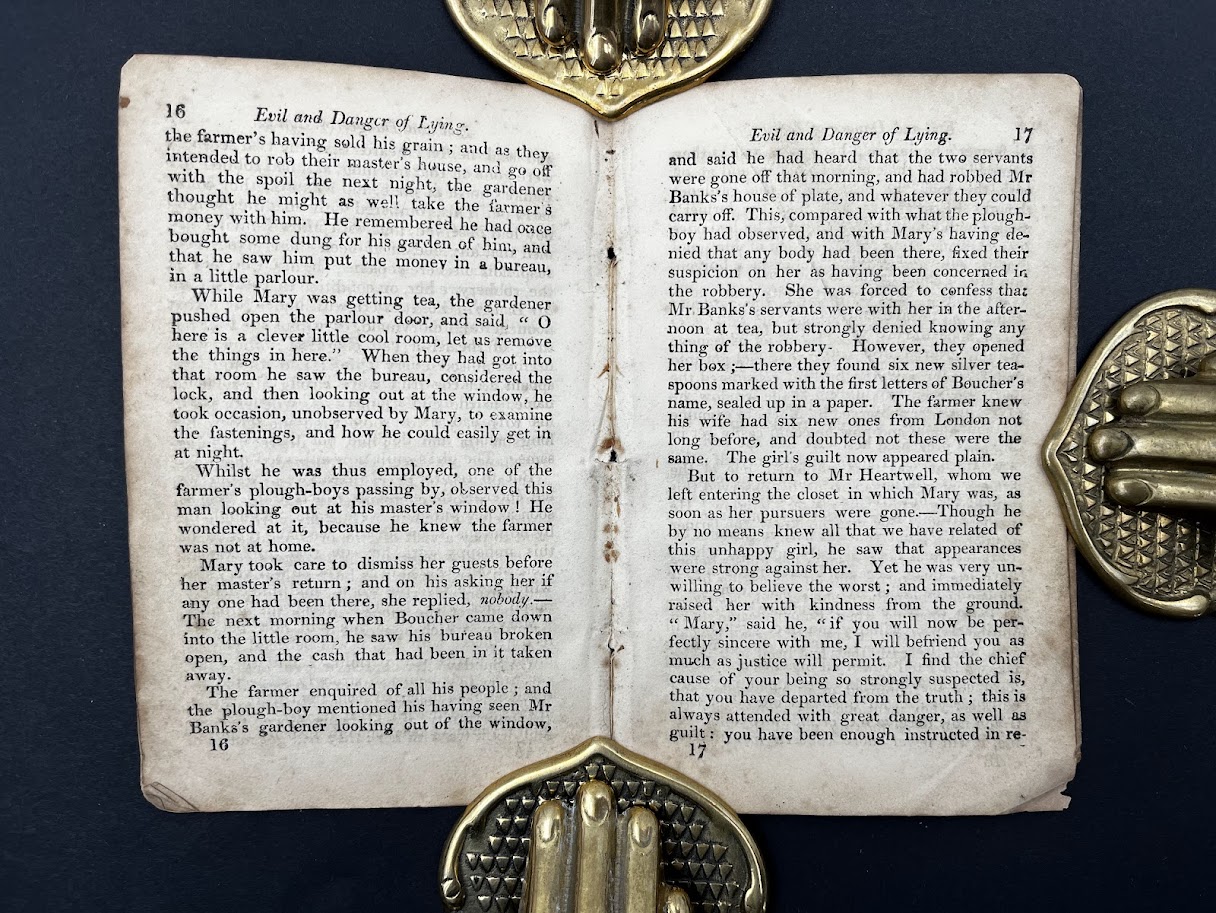 16
Evil and Danger of Lying.
the farmer's having sold his grain ; and as they
intended to rob their master's house, and go off
with the spoil the next night, the gardener
thought he might as well take the farmer's
money with him. He remembered he had once
bought some dung for his garden of him, and
that he saw him put the money in a bureau,
in a little parlour.
While Mary was getting tea, the gardener
pushed open the parlour door, and said, “ O
here is a clever little cool room, let us remove
the things in here.” When they had got into
that room he saw the bureau, considered the
lock, and then looking out at the window, he
took occasion, unobserved by Mary, to examine
the fastenings, and how he could easily get in
at night.
Whilst he was thus employed, one of the
farmer's plough-boys passing by, observed this
man looking out at his master's window ! He
wondered at it, because he knew the farmer
was not at home.
Mary took care to dismiss her guests before
her master's return ; and on his asking her if
any one had been there, she replied, nobody.—
The next morning when Boucher came down
into the little room, he saw his bureau broken
open, and the cash that had been in it taken
away.
The farmer enquired of all his people ; and
the plough-boy mentioned his having seen Mr
Banks's gardener looking out of the window,
16
Evil and Danger of Lying.
17
and said he had heard that the two servants
were gone off that morning, and had robbed Mr
Banks's house of plate, and whatever they could
carry off. This, compared with what the plough-
boy had observed, and with Mary's having de-
nied that any body had been there, fixed their
suspicion on her as having been concerned in
the robbery. She was forced to confess that
Mr Banks's servants were with her in the after-
noon at tea, but strongly denied knowing any
thing of the robbery- However, they opened
her box ;—there they found six new silver tea-
spoons marked with the first letters of Boucher's
name, sealed up in a paper. The farmer knew
his wife had six new ones from London not
long before, and doubted not these were the
same. The girl's guilt now appeared plain.
But to return to Mr Heartwell, whom we
left entering the closet in which Mary was, as
soon as her pursuers were gone.—Though he
by no means knew all that we have related of
this unhappy girl, he saw that appearances
were strong against her. Yet he was very un-
willing to believe the worst ; and immediately
raised her with kindness from the ground.
“ Mary,” said he, “ if you will now be per-
fectly sincere with me, I will befriend you as
much as justice will permit. I find the chief
cause of your being so strongly suspected is,
that you have departed from the truth ; this is
always attended with great danger, as well as
guilt : you have been enough instructed in re-
17